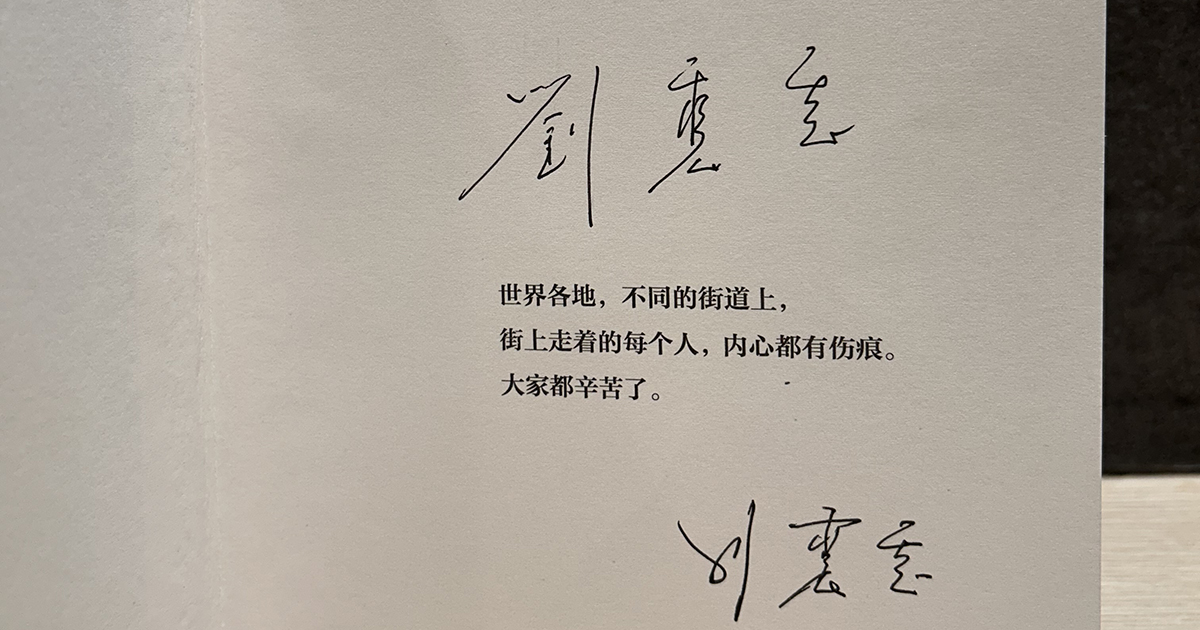 劉震云
世界各地，不同的街道上，
街上走着的每个人，内心都有伤痕。
大家都辛苦了。
刘震云